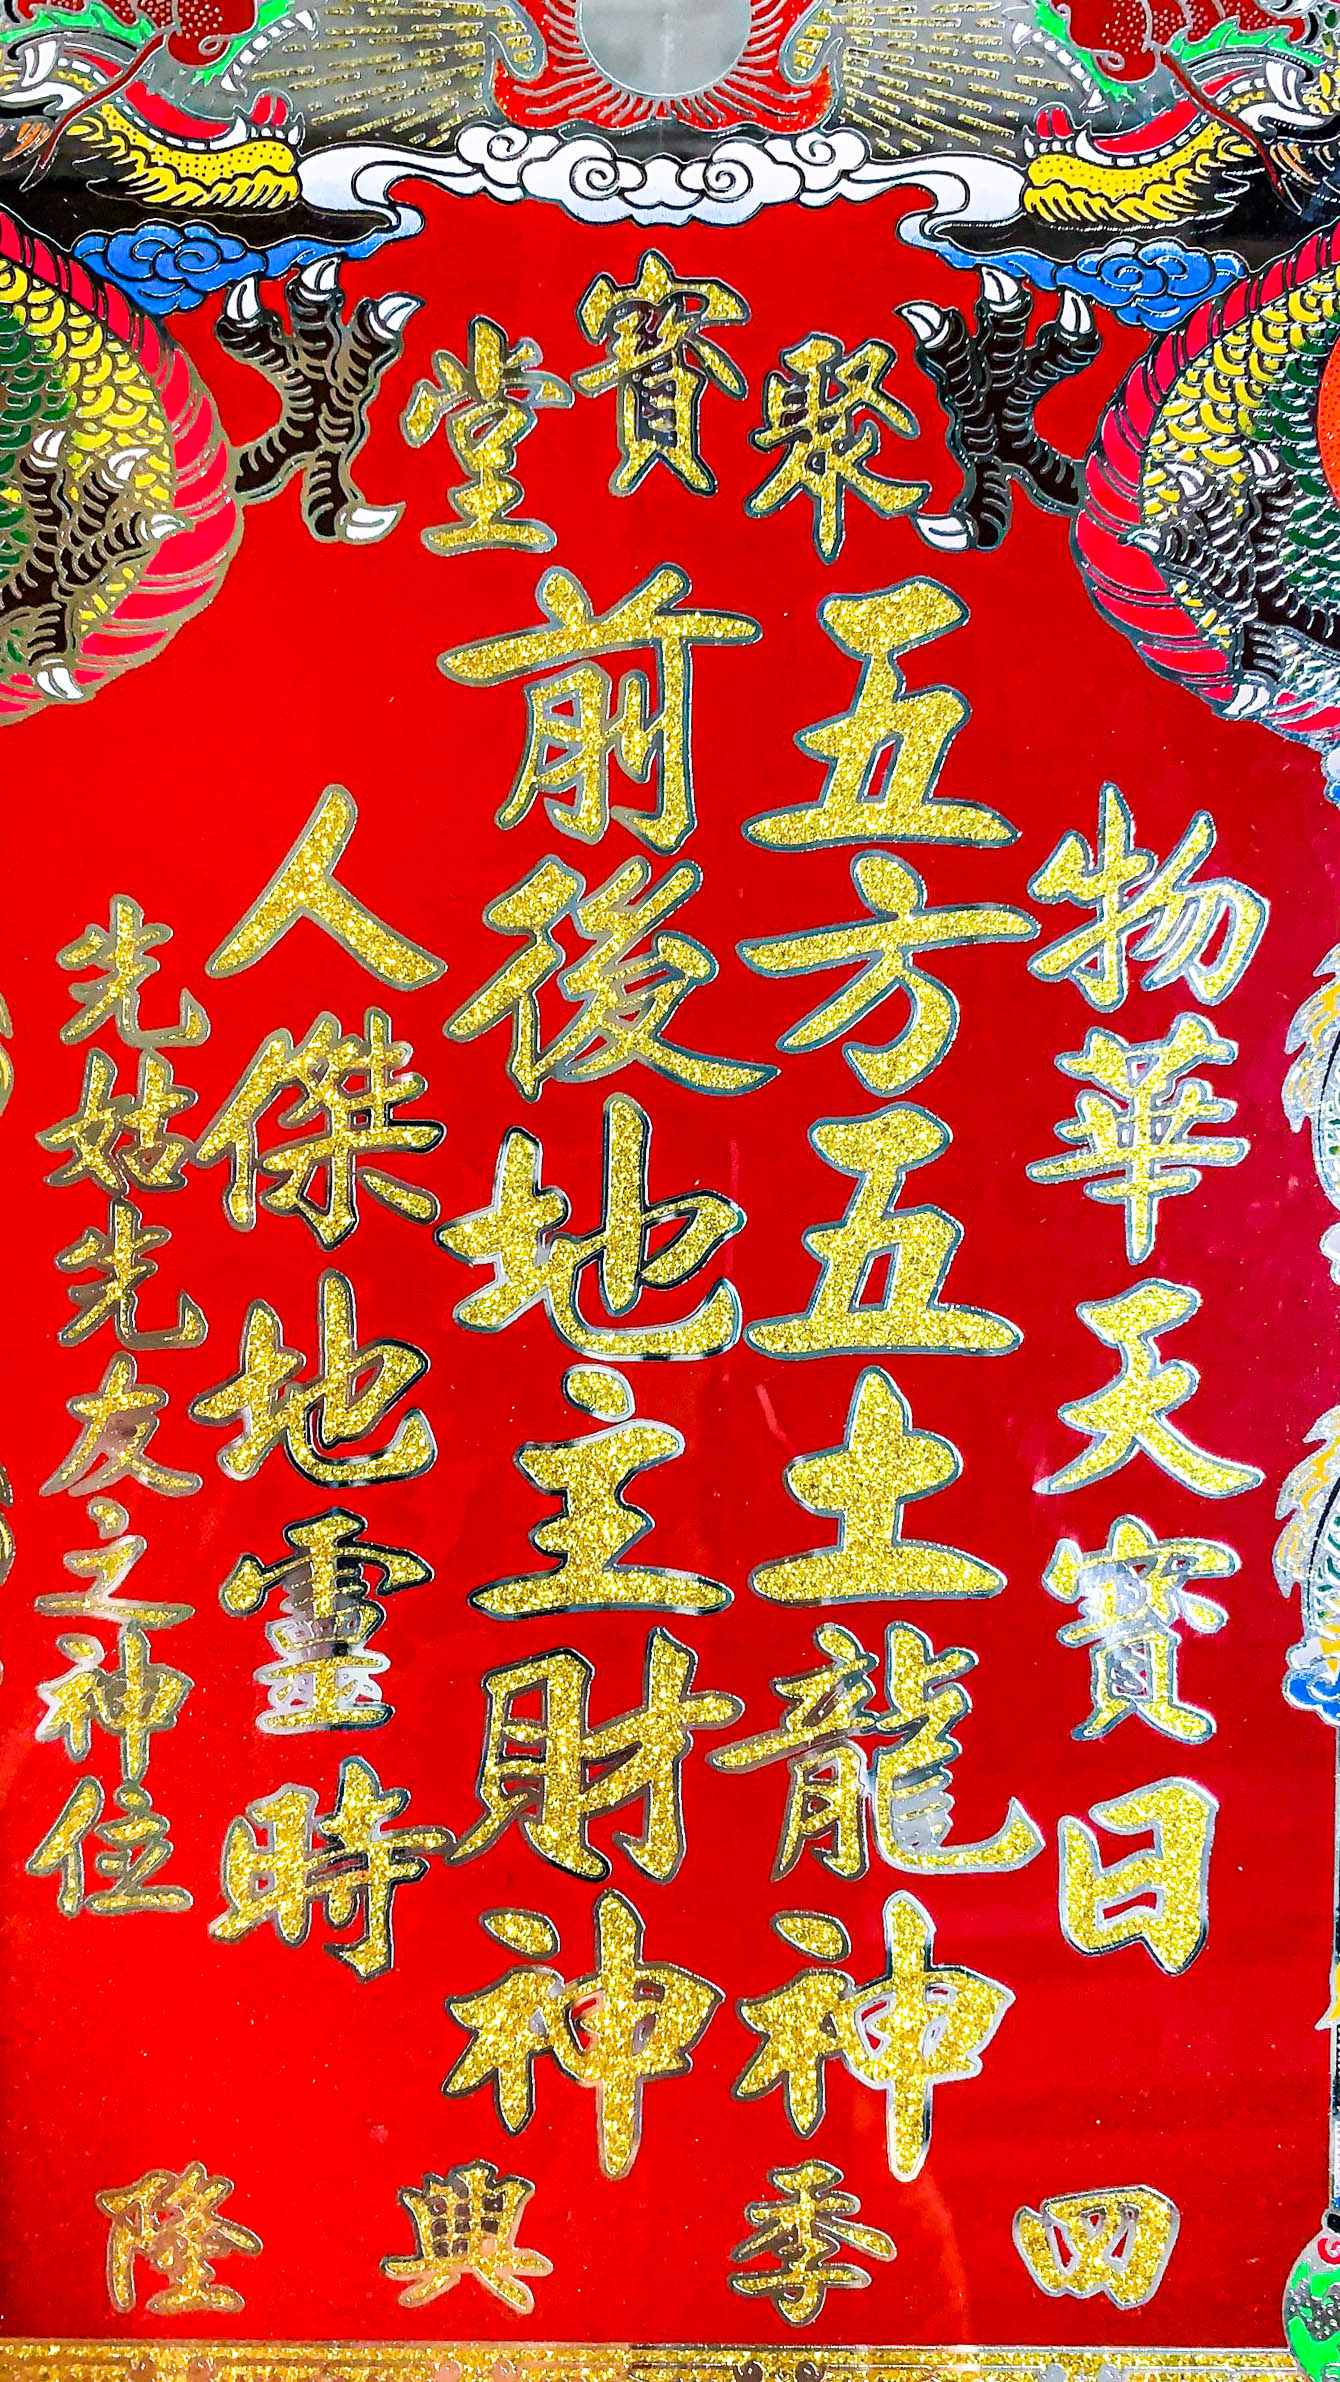 聚寳堂
物華天寳日
五方五土龍神
前後地主財神
人傑地靈時
先姑先友之神位
四季興隆